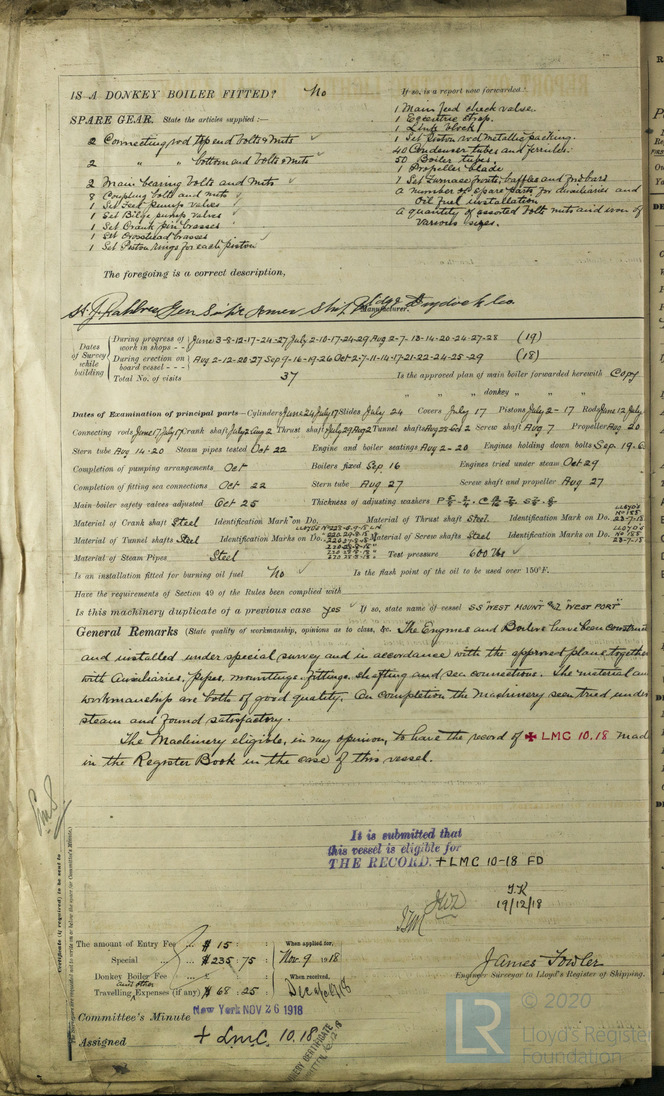 IS A DONKEY BOILER FITTED? No
If so, is a report now forwarded?
SPARE GEAR. State the articles supplied:—
2 Connecting rod top end bolts & nuts
2 " " bottom end bolts & nuts
2 Main bearing bolts and nuts
8 Coupling bolts and nuts
1 Set Feed pump valves
1 Set Bilge pump valves
1 Set Crank pin brasses
1 Set Crosshead brasses
1 Set Piston rings for each piston
1 Main feed check valve.
1 Eccentric strap.
1 Link block
1 Set Piston rod metallic packing.
40 Condenser tubes and ferrules.
50 Boiler tubes.
1 Propeller blade
1 Set Furnace fronts, baffles and firebars
A number of spare parts for auxiliaries and
Oil fuel installation
A quantity of assorted bolts nuts and iron of
various sizes.
The foregoing is a correct description,
Gen Supt Ship Bldg & Drydock Co.
Manufacturer.
Dates of Survey while building
During progress of work in shops - - June 3-8-12-17-24-27 July 2-10-17-24-29 Aug 2-7-13-14-20-24-27-28 (19)
During erection on board vessel - - - Aug 2-12-20-27 Sep 9-16-19-26 Oct 2-7-11-14-17-21-22-24-25-29 (18)
Total No. of visits 37
Is the approved plan of main boiler forwarded herewith Copy
" " " donkey " " "
Dates of Examination of principal parts—Cylinders June 24 July 17 Slides July 24 Covers July 17 Pistons July 2-17 Rods June 12 July
Connecting rods June 17 July 17 Crank shaft July 2 Aug 2 Thrust shaft July 29 Aug 2 Tunnel shafts Aug 28 Oct 2 Screw shaft Aug 7 Propeller Aug 20
Stern tube Aug 14-20 Steam pipes tested Oct 22 Engine and boiler seatings Aug 2-20 Engines holding down bolts Sep. 19.
Completion of pumping arrangements Oct Boilers fixed Sep. 16 Engines tried under steam Oct 29
Completion of fitting sea connections Oct 22 Stern tube Aug 27 Screw shaft and propeller Aug 27
Main boiler safety valves adjusted Oct 25 Thickness of adjusting washers
Material of Crank shaft Steel Identification Mark on Do. Material of Thrust shaft Steel. Identification Mark on Do. LLOYD'S No 188 23-7-18
Material of Tunnel shafts Steel Identification Marks on Do. Material of Screw shafts Steel Identification Marks on Do. LLOYD'S No 188 23-7-18
Material of Steam Pipes Steel Test pressure 600 lbs
Is an installation fitted for burning oil fuel No Is the flash point of the oil to be used over 150°F.
Have the requirements of Section 49 of the Rules been complied with
Is this machinery duplicate of a previous case yes If so, state name of vessel SS "WEST MOUNT" & "WEST PORT"
General Remarks (State quality of workmanship, opinions as to class, &c. The Engines and Boilers have been construc
and installed under special survey and in accordance with the approved plans together
with Auxiliaries, pipes, mountings, fittings, shafting and sea connections. The material an
workmanship are both of good quality. On completion the machinery seen tried under
steam and found satisfactory.
The Machinery eligible, in my opinion, to have the record of + LMC 10.18 mad
in the Register Book in the case of this vessel.
It is submitted that
this vessel is eligible for
THE RECORD. + LMC 10-18 FD
19/12/18
Certificate (if required) to be sent to
The amount of Entry Fee ... $ 15 : :
Special ... $ 235 . 75 :
Donkey Boiler Fee ... £ : :
and other
Travelling Expenses (if any) $ 68 : 25 :
When applied for,
Nov. 9 1918
When received,
James Fowler
Engineer Surveyor to Lloyd's Register of Shipping.
Committee's Minute New York NOV 26 1918
Assigned + L.M.C. 10.18
LR
© 2020
Lloyd's Register
Foundation